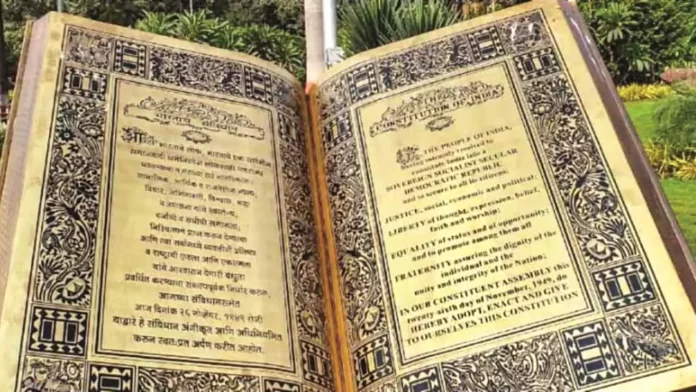 संविधान
भारताचे लोक, भारताचे एक सार्वभौम
समाजवादी धर्मनिरपेक्ष लोकशाही गणराज्य
घडवण्याचा व त्याच्या सर्व नागरिकांस
सामाजिक, आर्थिक व राजनैतिक न्याय,
विचार, अभिव्यक्ती, विश्वास, श्रद्धा
व उपासना यांचे स्वातंत्र्य,
दर्जाची व संधीची समानता,
निश्चितपणे प्राप्त करून देण्याचा
आणि त्या सर्वांमध्ये व्यक्तीची प्रतिष्ठा
व राष्ट्राची एकता आणि एकात्मता
यांचे आश्वासन देणारी बंधुता
प्रवर्धित करण्याचा संकल्पपूर्वक निर्धार करून,
आमच्या संविधानसभेत
आज दिनांक २६ नोव्हेंबर, १९४९ रोजी
याद्वारे हे संविधान अंगीकृत आणि अधिनियमित
करून स्वतःप्रत अर्पण करीत आहोत.
THE
CONSTITUTION OF INDIA
WE, THE PEOPLE OF INDIA,
having solemnly resolved to
constitute India into a
SOVEREIGN SOCIALIST SECULAR
DEMOCRATIC REPUBLIC
and to secure to all its citizens:
JUSTICE, social, economic and political;
LIBERTY of thought, expression, belief,
faith and worship;
EQUALITY of status and of opportunity;
and to promote among them all
FRATERNITY assuring the dignity of the
individual and the
unity and integrity of the Nation;
IN OUR CONSTITUENT ASSEMBLY this
twenty-sixth day of November, 1949, do
HEREBY ADOPT, ENACT AND GIVE
TO OURSELVES THIS CONSTITUTION